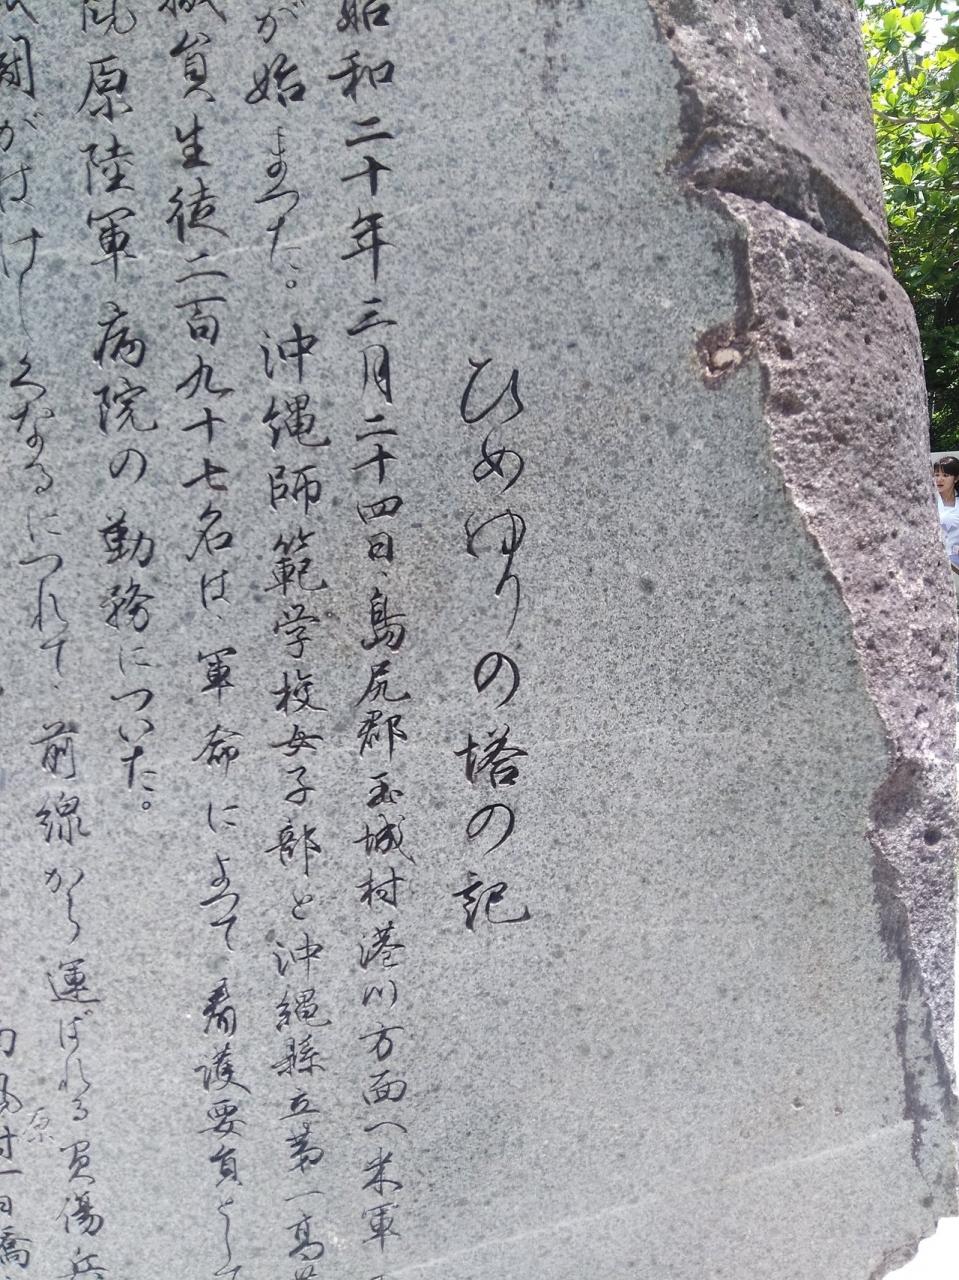 ひめゆりの塔の記
昭和二十年三月二十四日、島尻郡玉城村港川方面へ米軍
が始まった。沖縄師範学校女子部と沖縄縣立第一高
職員生徒二百九十七名は、軍命によって看護要員として
原陸軍病院の勤務についた。
闘がはげしくなるにつれて、前線から運ばれる負傷兵